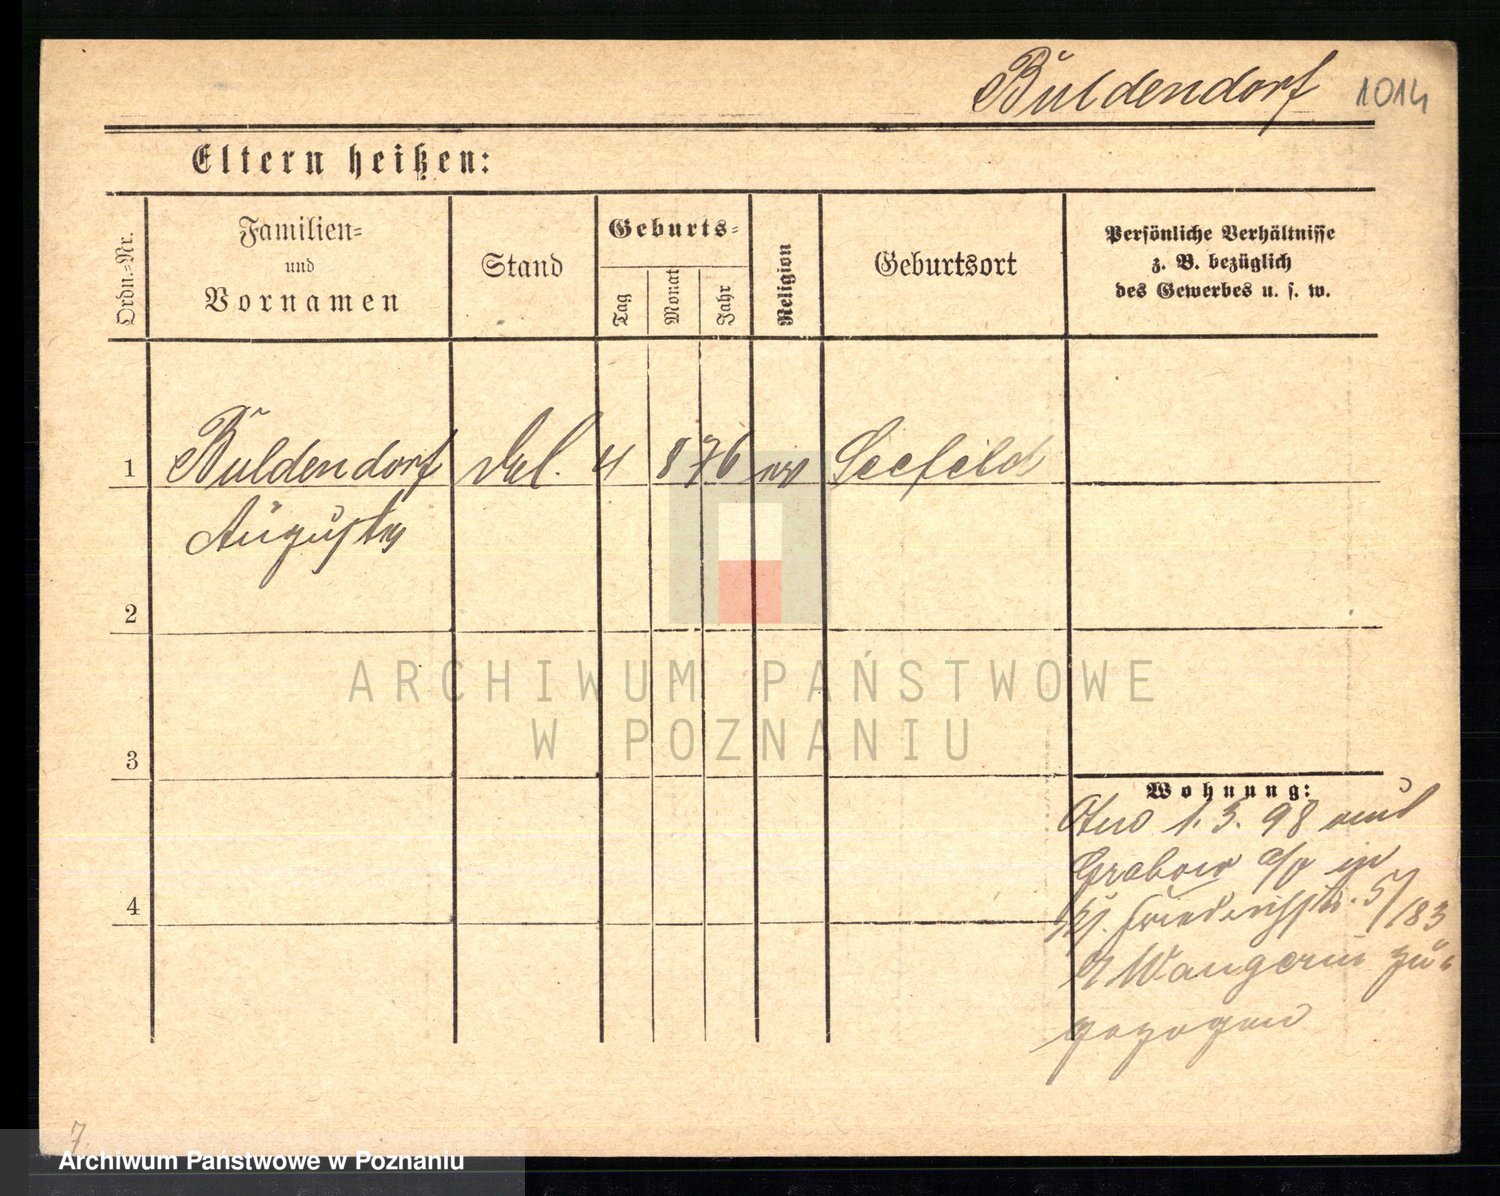 Buldendorf 1014
Eltern heißen:
Ordn.-Nr.
Familien-
und
Vornamen
Stand
Geburts-
Tag
Monat
Jahr
Religion
Geburtsort
Persönliche Verhältnisse
z. B. bezüglich
des Gewerbes u. s. w.
1 Buldendorf 4 8 76 ev Seefeld
Auguste
2
ARCHIWUM PAŃSTWOWE
W POZNANIU
3
Wohnung:
1. 3. 98 aus
Grabow a/O in
Friedrichstr. 5/183
Wangerin zu-
gezogen
4
7
Archiwum Państwowe w Poznaniu